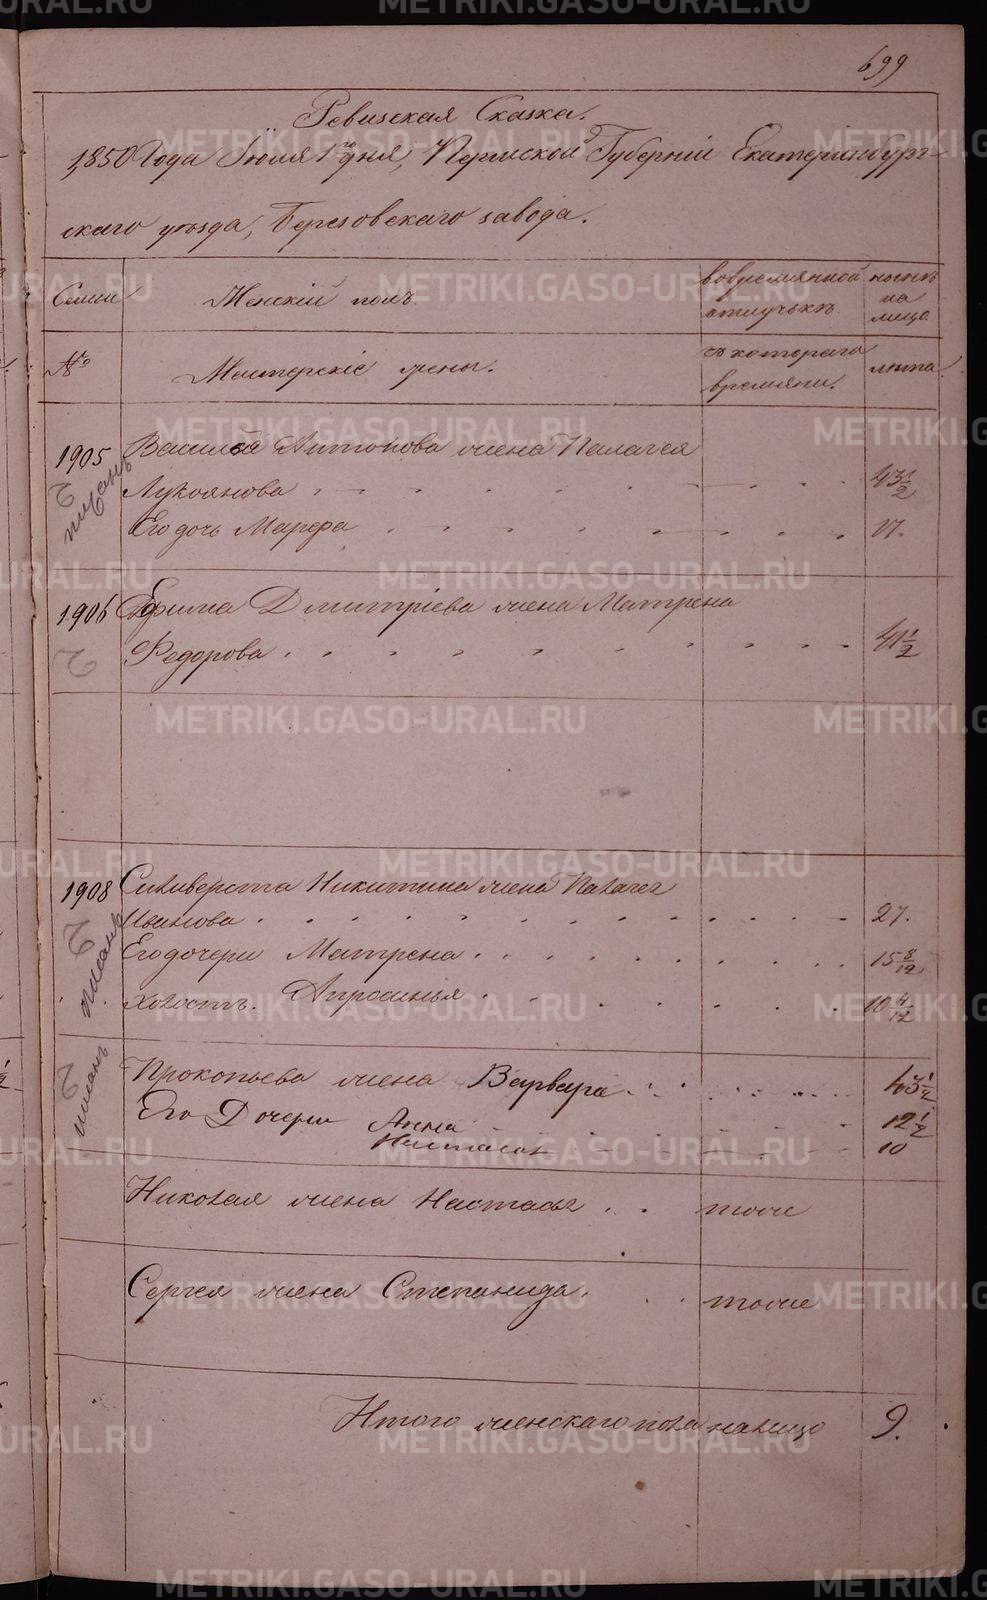 699
Ревизская Сказка.
1850 Года Іюля 1го дня, Пермской Губерніи Екатеринбург-
скаго уѣзда, Березовскаго завода.
Семьи Женскій полъ во временной отлучькѣ нынѣ на лицо
№ Мастерскіе жены. съ котораго времяни. лѣта.
1905 Василья Антонова жена Палагея
Лукоянова 43 1/2
Его дочь Марфа 17.
1906 Ефима Дмитріева жена Матрена
Федорова 41 1/2
1908 Силиверста Никитина жена Палагея
Иванова 27.
Его дочери Матрена 15 8/12
холостъ. Апросинья 10 4/12
Прокопьева жена Варвара 43 1/2
Его Дочери Анна 12 1/2
Настасья 10
Николая жена Настасья тоже
Сергея жена Степанида. тоже
Итого женскаго пола налицо 9.
METRIKI.GASO-URAL.RU